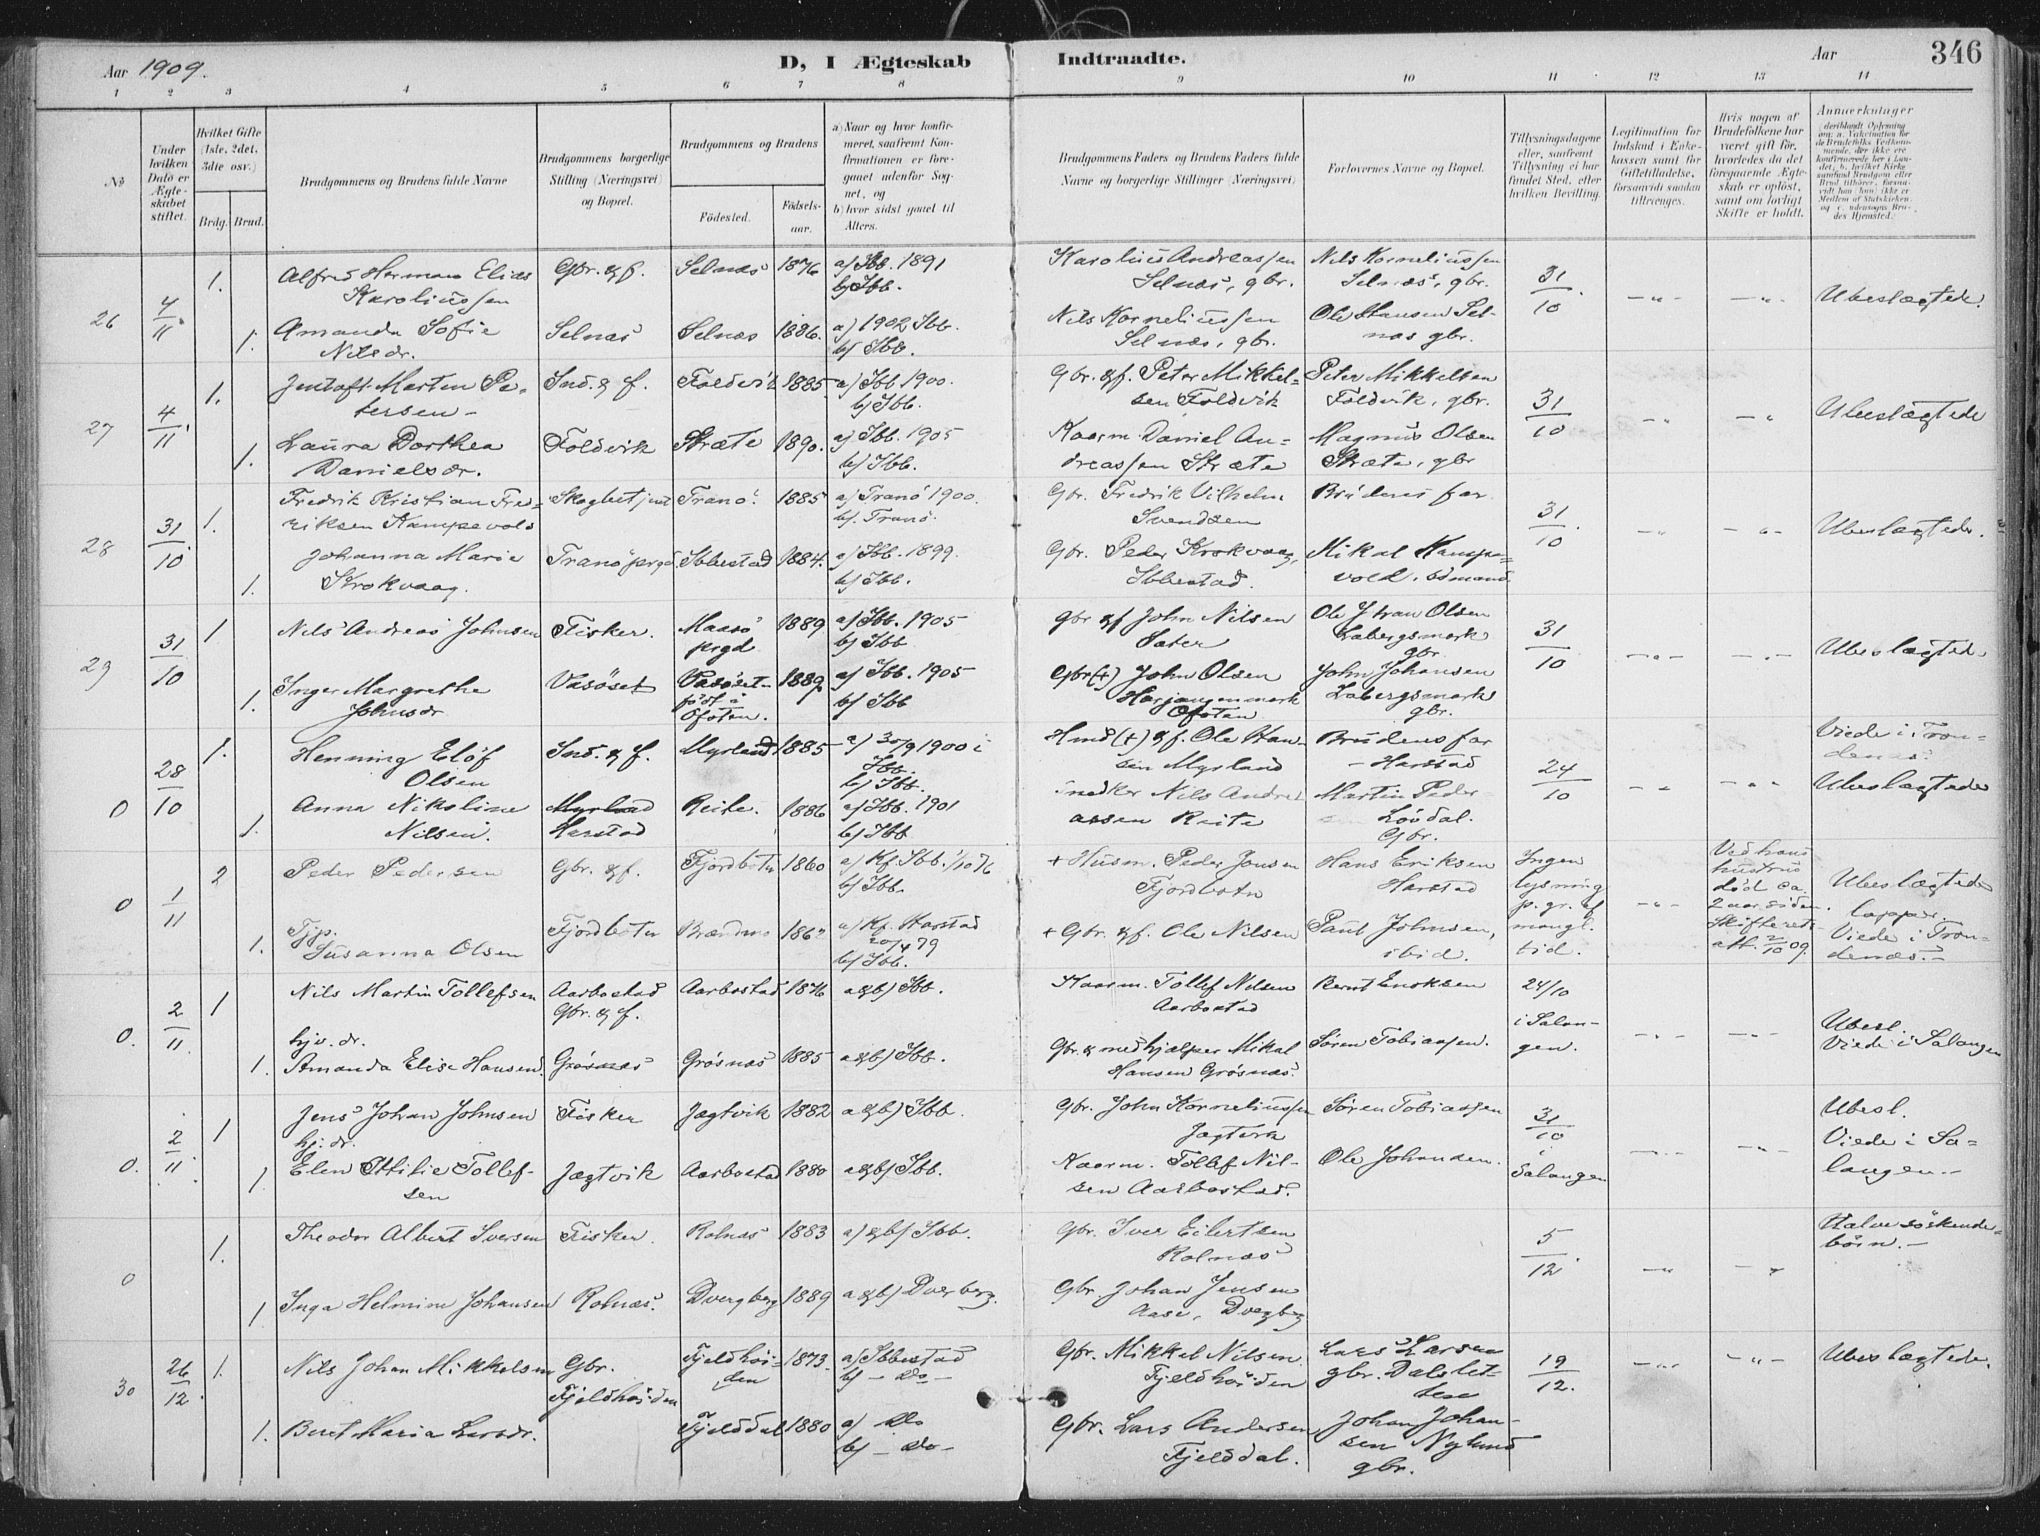 Aar 1909.
D, I Ægteskab Indtraadte.
Aar
346
1 2 3 4 5 6 7 8 9 10 11 12 13 14
No
Under hvilken Dato er Ægteskabet stiftet.
Hvilket Gifte (1ste, 2det, 3die osv.)
Brdg. Brud.
Brudgommens og Brudens fulde Navne
Brudgommens borgerlige Stilling (Næringsvei) og Bopæl.
Brudgommens og Brudens
Fødested. Fødselsaar.
a) Naar og hvor konfirmeret, saafremt Konfirmationen er foregaaet udenfor Sognet, og
b) hvor sidst gaaet til Alters.
Brudgommens Faders og Brudens Faders fulde Navne og borgerlige Stillinger (Næringsvei)
Forlovernes Navne og Bopæl.
Tillysningsdagene eller, saafremt Tillysning ei har fundet Sted, efter hvilken Bevilling.
Legitimation for Indskud i Enkekassen samt for Giftetilladelse, forsaavidt saadan tiltrænges.
Hvis nogen af Brudefolkene har været gift før, hvorledes da det foregaaende Ægteskab er opløst, samt om lovligt Skifte er holdt.
Anmærkninger
26 4/11 1. Alfred Herman Elias Karoliussen Gbr. & f. Selnæs 1876 a) Ibb. 1891 b) Ibb. Karolius Andreassen Selnæs, gbr. Nils Korneliussen Selnæs, gbr. 31/10 Ubeslægtede.
1. Amanda Sofie Nilsdr. Selnæs Selnæs 1886. a) 1902 Ibb. b) Ibb. Nils Korneliussen Selnæs, gbr. Ole Hansen Selnæs gbr.
27 4/11. 1. Jentoft Marten Petersen - Ind. & f. Foldvik 1885 a) Ibb 1900. b) Ibb. Gbr. & f. Peter Mikkelsen Foldvik Peter Mikkelsen Foldvik, gbr. 31/10 Ubeslægtede
1. Laura Dorthea Danielsdr. Foldvik Stræte 1890. a) Ibb. 1905 b) Ibb. Kaarm. Daniel Andreassen Stræte Magnus Olsen Stræte, gbr
28 31/10. 1. Fredrik Kristian Fredriksen Kampevold Tranö. 1885 a) Tranö 1900. b) Tranö. Gbr. Fredrik Vilhelm Svendsen Brudens far 31/10 Ubeslægtede.
1. Johanna Marie Krokvaag. Ibbestad 1884. a) Ibb. 1899. b) Ibb. Gbr. Peder Krokvaag, Ibbestad. Mikal Kampevold.
29 31/10 1. Nils Andreas Johnsen Fisker. Maasö prgd. 1889 a) Ibb. 1905 b) Ibb Gbr & f John Nilsen Sæter Ole Johan Olsen Labergsmark gbr. 31/10 Ubeslægtede
1. Inger Margrethe Johnsdr Vasöset Vasöset født i Ofoten. 1889. a) Ibb. 1905 b) Ibb Gbr (+) John Olsen Herjangenmark Ofoten John Johansen Labergsmark gbr.
0 28/10 1. Henning Elöf Olsen Ind. & f. Myrland 1885 a) 30/9 1900 i Ibb. b) Ibb. Hmd (+) & f. Ole Hansen Myrland Brudens far - Harstad 24/10 Viede i Trondenæs. Ubeslægtede
1. Anna Nikoline Nilsen. Harstad Reite. 1886 a) Ibb. 1901 b) Ibb Snedker Nils Andreassen Reite Martin Pedersen Lövdal. Gbr.
0 1/11 2 Peder Pedersen Gbr. & f. Fjordbotn 1860 a) Kf. Ibb. 1/10 76 b) Ibb. + Husm. Peder Jonsen Fjordbotn Hans Eriksen Harstad Ingen lysning p. gr. af mangl. tid. Ved hans hustrus död ca. 2 aar siden. Skifteretsatt. 2/10 09. Ubeslægtede lapper. Viede i Trondenæs. -
1. Tjp. Susanna Olsen Fjordbotn 1862 a) Kf. Harstad 20/4 79 b) Ibb. + Gbr. & f. Ole Nilsen Paul Johnsen, ibid.
0. 2/11 1 Nils Martin Tollefsen Aarbostad Gbr. & f. Aarbostad 1876 a & b) Ibb. Kaarm. Tollef Nilsen Aarbostad Bernt Enoksen 24/10 i Salangen. Ubesl. Viede i Salangen
1. hjv. dr. Amanda Elise Hansen. Grösnæs Grösnæs 1885 a & b) Ibb. Gbr. & medhjælper Mikal Hansen Grösnæs. Sören Tobiassen.
0. 2/11. 1 Jens Johan Johnsen Fisker Jægtvik 1882 a & b) Ibb. Gbr. John Korneliussen Jægtvik Sören Tobiassen 31/10 i Salangen Ubesl. Viede i Salangen. -
1 hj. dr. Elen Ottilie Tollefsen Jægtvik Aarbostad 1880 a & b) Ibb. Kaarm. Tollef Nilsen Aarbostad. Ole Johansen.
0 1. Theodor Albert Iversen Fisker. Rolnæs 1883 a) & b) Ibb. Gbr. Iver Eilertsen Rolnæs 5/12. Halvesöskendebörn. -
1 Inga Helmine Johansen Rolnæs. Dverberg 1889 a & b) Dverberg. Gbr. Johan Jensen Aase, Dverberg
30 26/12 1. Nils Johan Mikkelsen Gbr. Fjeldhöiden Fjeldhöiden 1873. a) Ibbestad b) - Do - Gbr. Mikkel Nilsen Fjeldhöiden Lars Larsen gbr. 19/12. Ubeslægtede.
1. Beret Maria Larsdr. Fjelddal 1880 a) Do b) - Do - Gbr. Lars Andersen Fjelddal. Johan Johansen Nylund gbr.